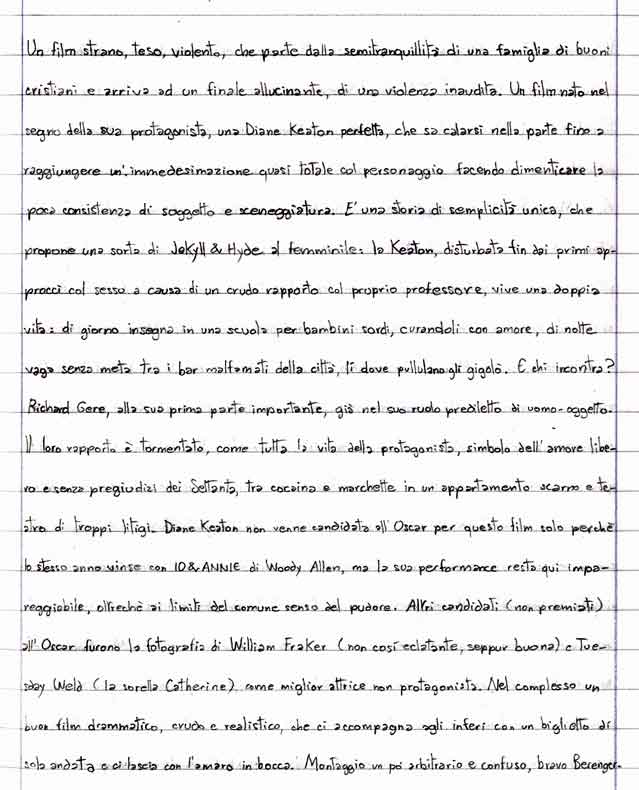 Un film strano, teso, violento, che parte dalla semitranquillità di una famiglia di buoni
cristiani e arriva ad un finale allucinante, di una violenza inaudita. Un film nato nel
segno della sua protagonista, una Diane Keaton perfetta, che sa calarsi nella parte fino a
raggiungere un'immedesimazione quasi totale col personaggio facendo dimenticare la
poca consistenza di soggetto e sceneggiatura. E' una storia di semplicità unica, che
propone una sorta di Jekyll & Hyde al femminile: la Keaton, disturbata fin dai primi ap-
procci col sesso a causa di un crudo rapporto col proprio professore, vive una doppia
vita: di giorno insegna in una scuola per bambini sordi, curandoli con amore, di notte
vaga senza meta tra i bar malfamati della città, lì dove pullulano gli gigolò. E chi incontra?
Richard Gere, alla sua prima parte importante, già nel suo ruolo prediletto di uomo-oggetto.
Il loro rapporto è tormentato, come tutta la vita della protagonista, simbolo dell'amore libe-
ro e senza pregiudizi dei Settanta, tra cocaina e marchette in un appartamento scarno e te-
atro di troppi litigi. Diane Keaton non venne candidata all'Oscar per questo film solo perchè
lo stesso anno vinse con IO & ANNIE di Woody Allen, ma la sua performance resta qui impa-
reggiabile, oltrechè ai limiti del comune senso del pudore. Altri candidati (non premiati)
all'Oscar furono la fotografia di William Fraker (non così eclatante, seppur buona) e Tue-
sday Weld (la sorella Catherine) come miglior attrice non protagonista. Nel complesso un
buon film drammatico, crudo e realistico, che ci accompagna agli inferi con un biglietto di
sola andata e ci lascia con l'amaro in bocca. Montaggio un po' arbitrario e confuso, bravo Berenger.